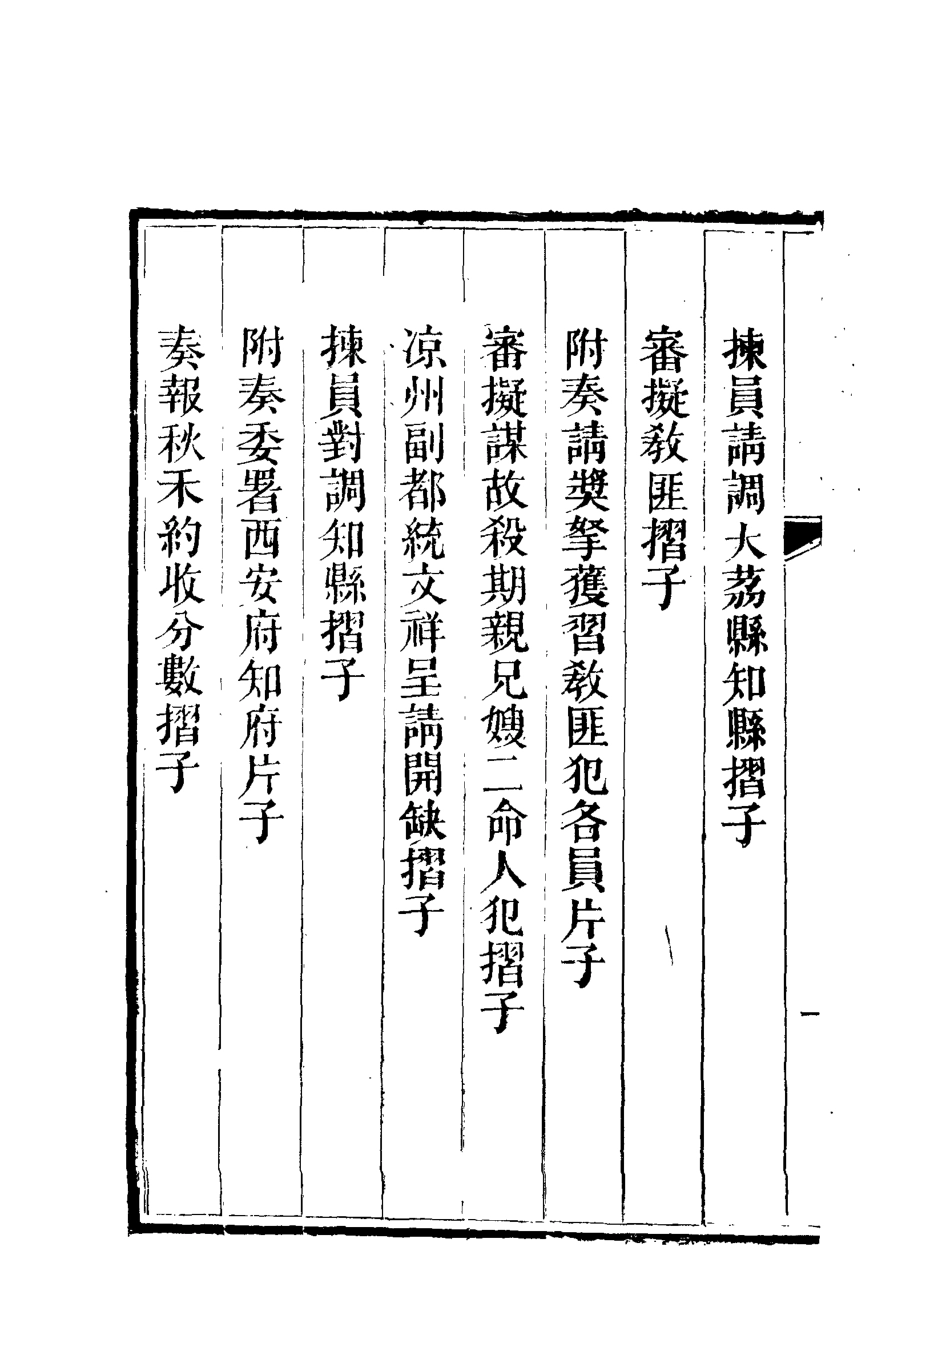 揀員請調大荔縣知縣摺子
審擬教匪摺子
附奏請奬拏獲習教匪犯各員片子
審擬謀故殺期親兄嫂二命人犯摺子
凉州副都統文祥呈請開缺摺子
揀員對調知縣摺子
附奏委署西安府知府片子
奏報秋禾約收分數摺子
一